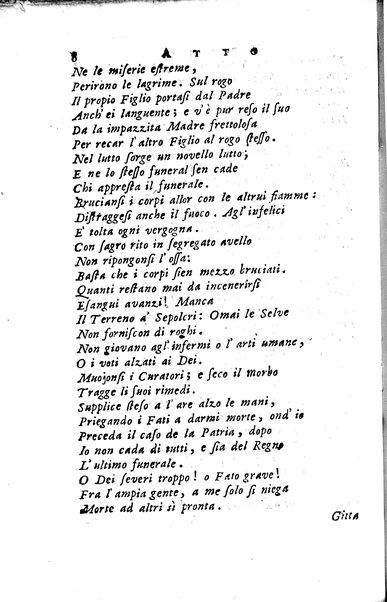 8 ATTO
Ne le miſerie eſtreme,
Perirono le lagrime. Sul rogo
Il propio Figlio portaſi dal Padre
Anch' ei languente; e v'è pur reſo il ſuo
Da la impazzita Madre frettoloſa
Per recar l'altro Figlio al rogo ſteſſo.
Nel lutto ſorge un novello lutto;
E ne lo ſteſſo funeral ſen cade
Chi appreſta il funerale.
Brucianſi i corpi allor con le altrui fiamme:
Diſtraggeſi anche il fuoco. Agl' infelici
E' tolta ogni vergogna.
Con ſagro rito in ſegregato avello
Non ripongonſi l'oſſa:
Baſta che i corpi ſien mezzo bruciati.
Quanti reſtano mai da incenerirſi
Eſangui avanzi! Manca
Il Terreno a' Sepolcri: Omai le Selve
Non forniſcon di roghi.
Non giovano agl' infermi o l' arti umane,
O i voti alzati ai Dei.
Muojonſi i Curatori; e ſeco il morbo
Tragge li ſuoi rimedi.
Supplice ſteſo a l' are alzo le mani,
Priegando i Fati a darmi morte, ond' io
Preceda il caſo de la Patria, dopo
Io non cada di tutti, e ſia del Regno
L' ultimo funerale.
O Dei ſeveri troppo! o Fato grave!
Fra l'ampia gente, a me ſolo ſi niega
Morte ad altri sì pronta.
Gitta